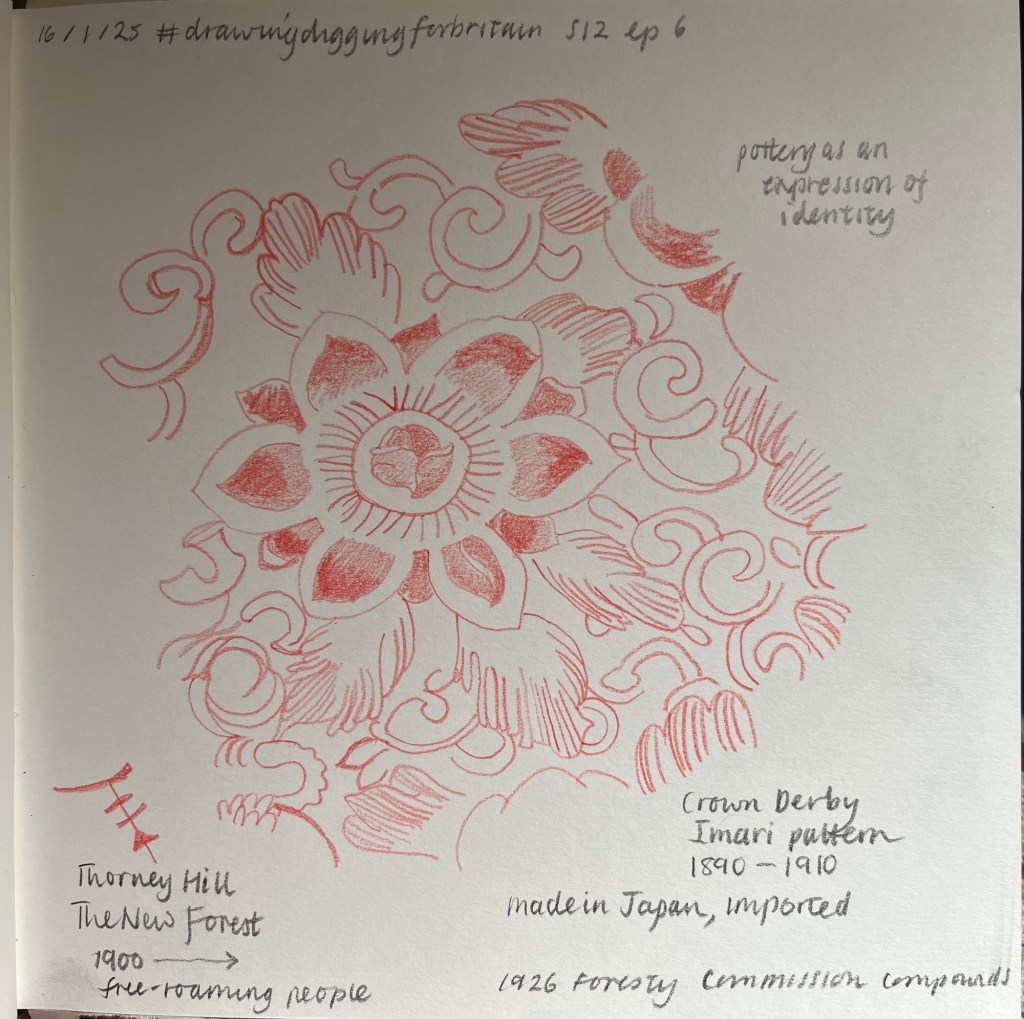 16/1/25 #drawingdiggingforbritain S12 ep 6
pottery as an
expression of
identity
Crown Derby
Imari pattern
1890 – 1910
made in Japan, imported
Thorney Hill
The New Forest
1900 →
free-roaming people
1926 Foresty Commission Compounds